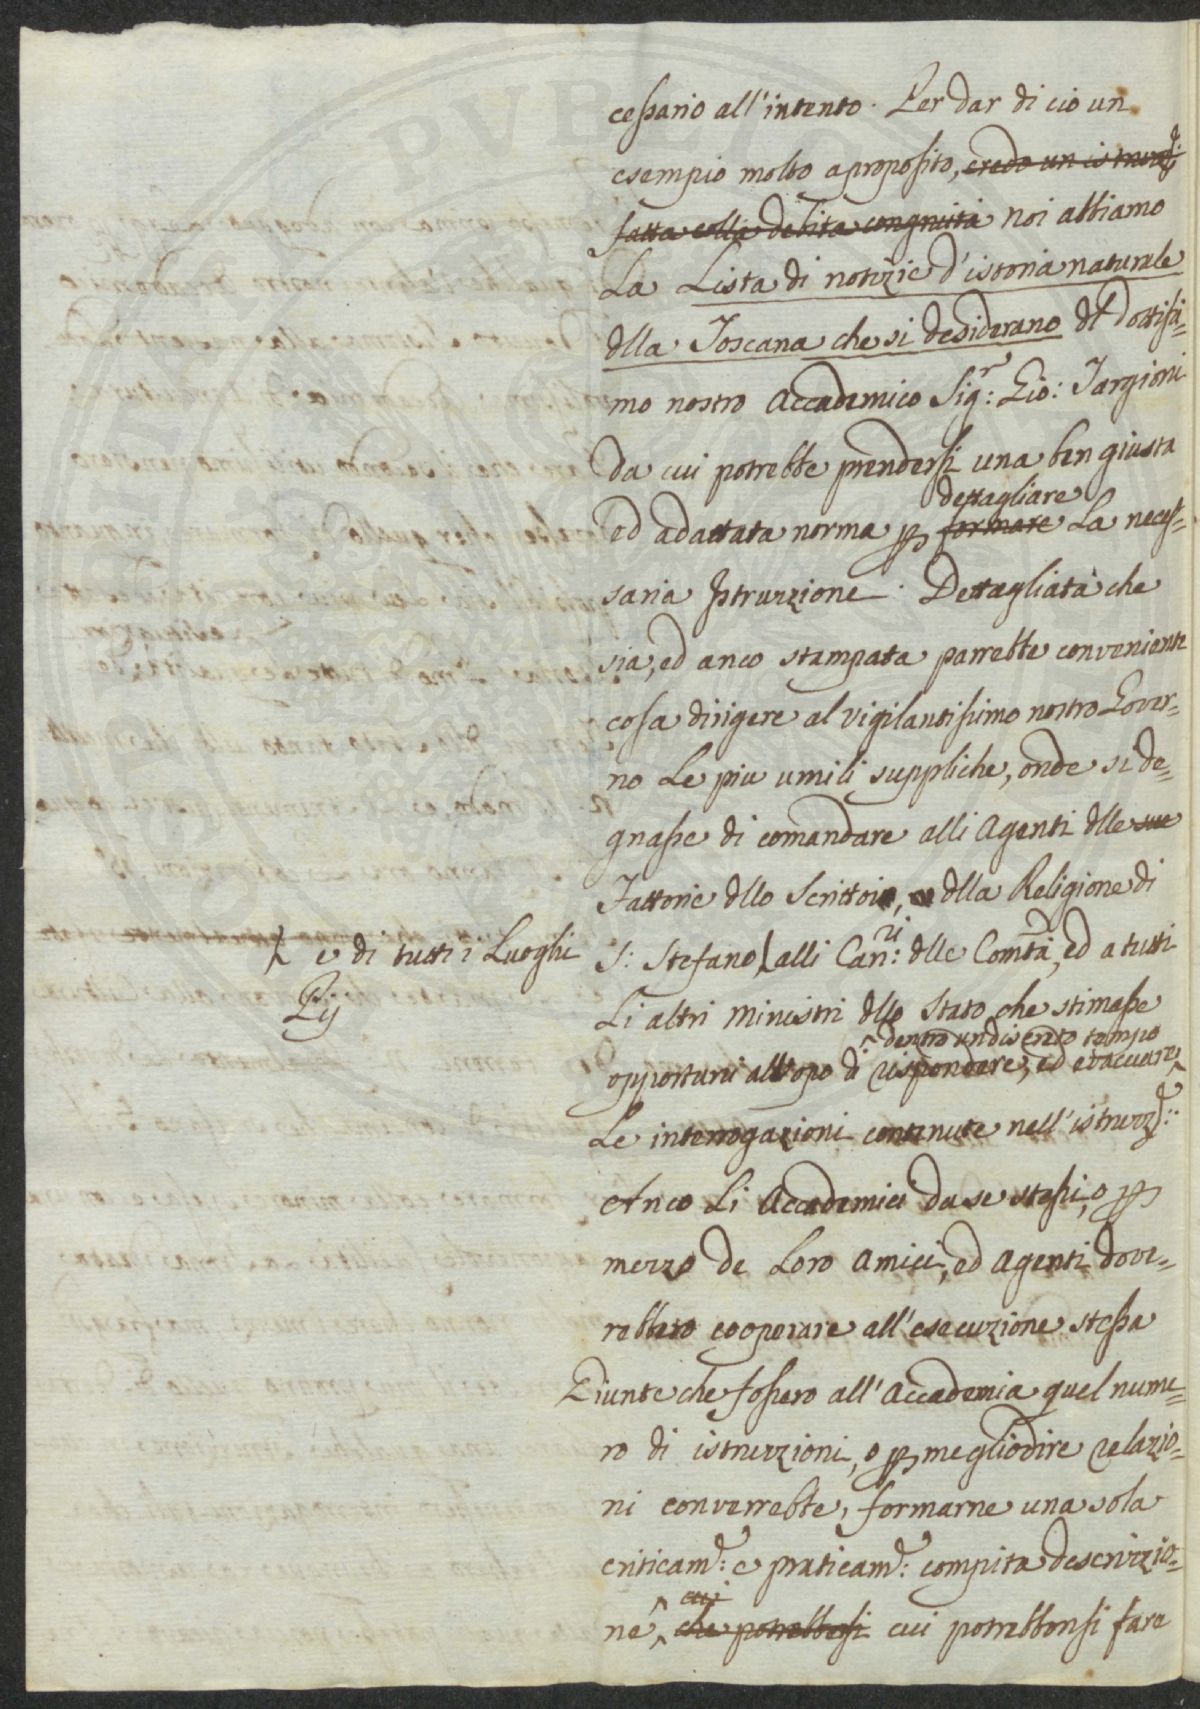 cessario all'intento. Per dar di cio un
esempio molto aproposito, credo un istruz.e
fatta colla debita congruità noi abbiamo
La Lista di notizie d'istoria naturale
dlla Toscana che si desiderano dl Dottissi=
mo nostro Accademico Sig.r: Gio: Targioni
da cui potrebbe prendersi una ben giusta
dettagliare
ed adattata norma p formare La neces=
saria Istruzzione. Dettagliata che
sia, ed anco stampata parrebbe conveniente
cosa dirigere al vigilantissimo nostro Gover=
no Le piu umili suppliche, onde si de=
gnasse di comandare alli Agenti dlle sue
Fattorie dllo Scrittoio, dlla Religione di
e di tutti i Luoghi
Pij
S: Stefano alli Can:ri dlle Comtà, ed a tutti
Li altri Ministri dllo Stato che stimasse
dentro un discreto tempo
opportuni all'opo di rispondere, ed evacuare
Le interrogazioni contenute nell'istruzz.e:
Anco Li Accademici da se stessi, o p
mezzo de Loro Amici, ed Agenti dove=
rebbero cooperare all'esecuzione stessa
Giunte che fossero all'Accademia quel nume=
ro di istruzzioni, o p meglio dire relazio=
ni converrebbe, formarne una sola
criticam.e: e praticam.e: compita descrizzio=
cui
ne, che potrebbesi cui potrebbonsi fare